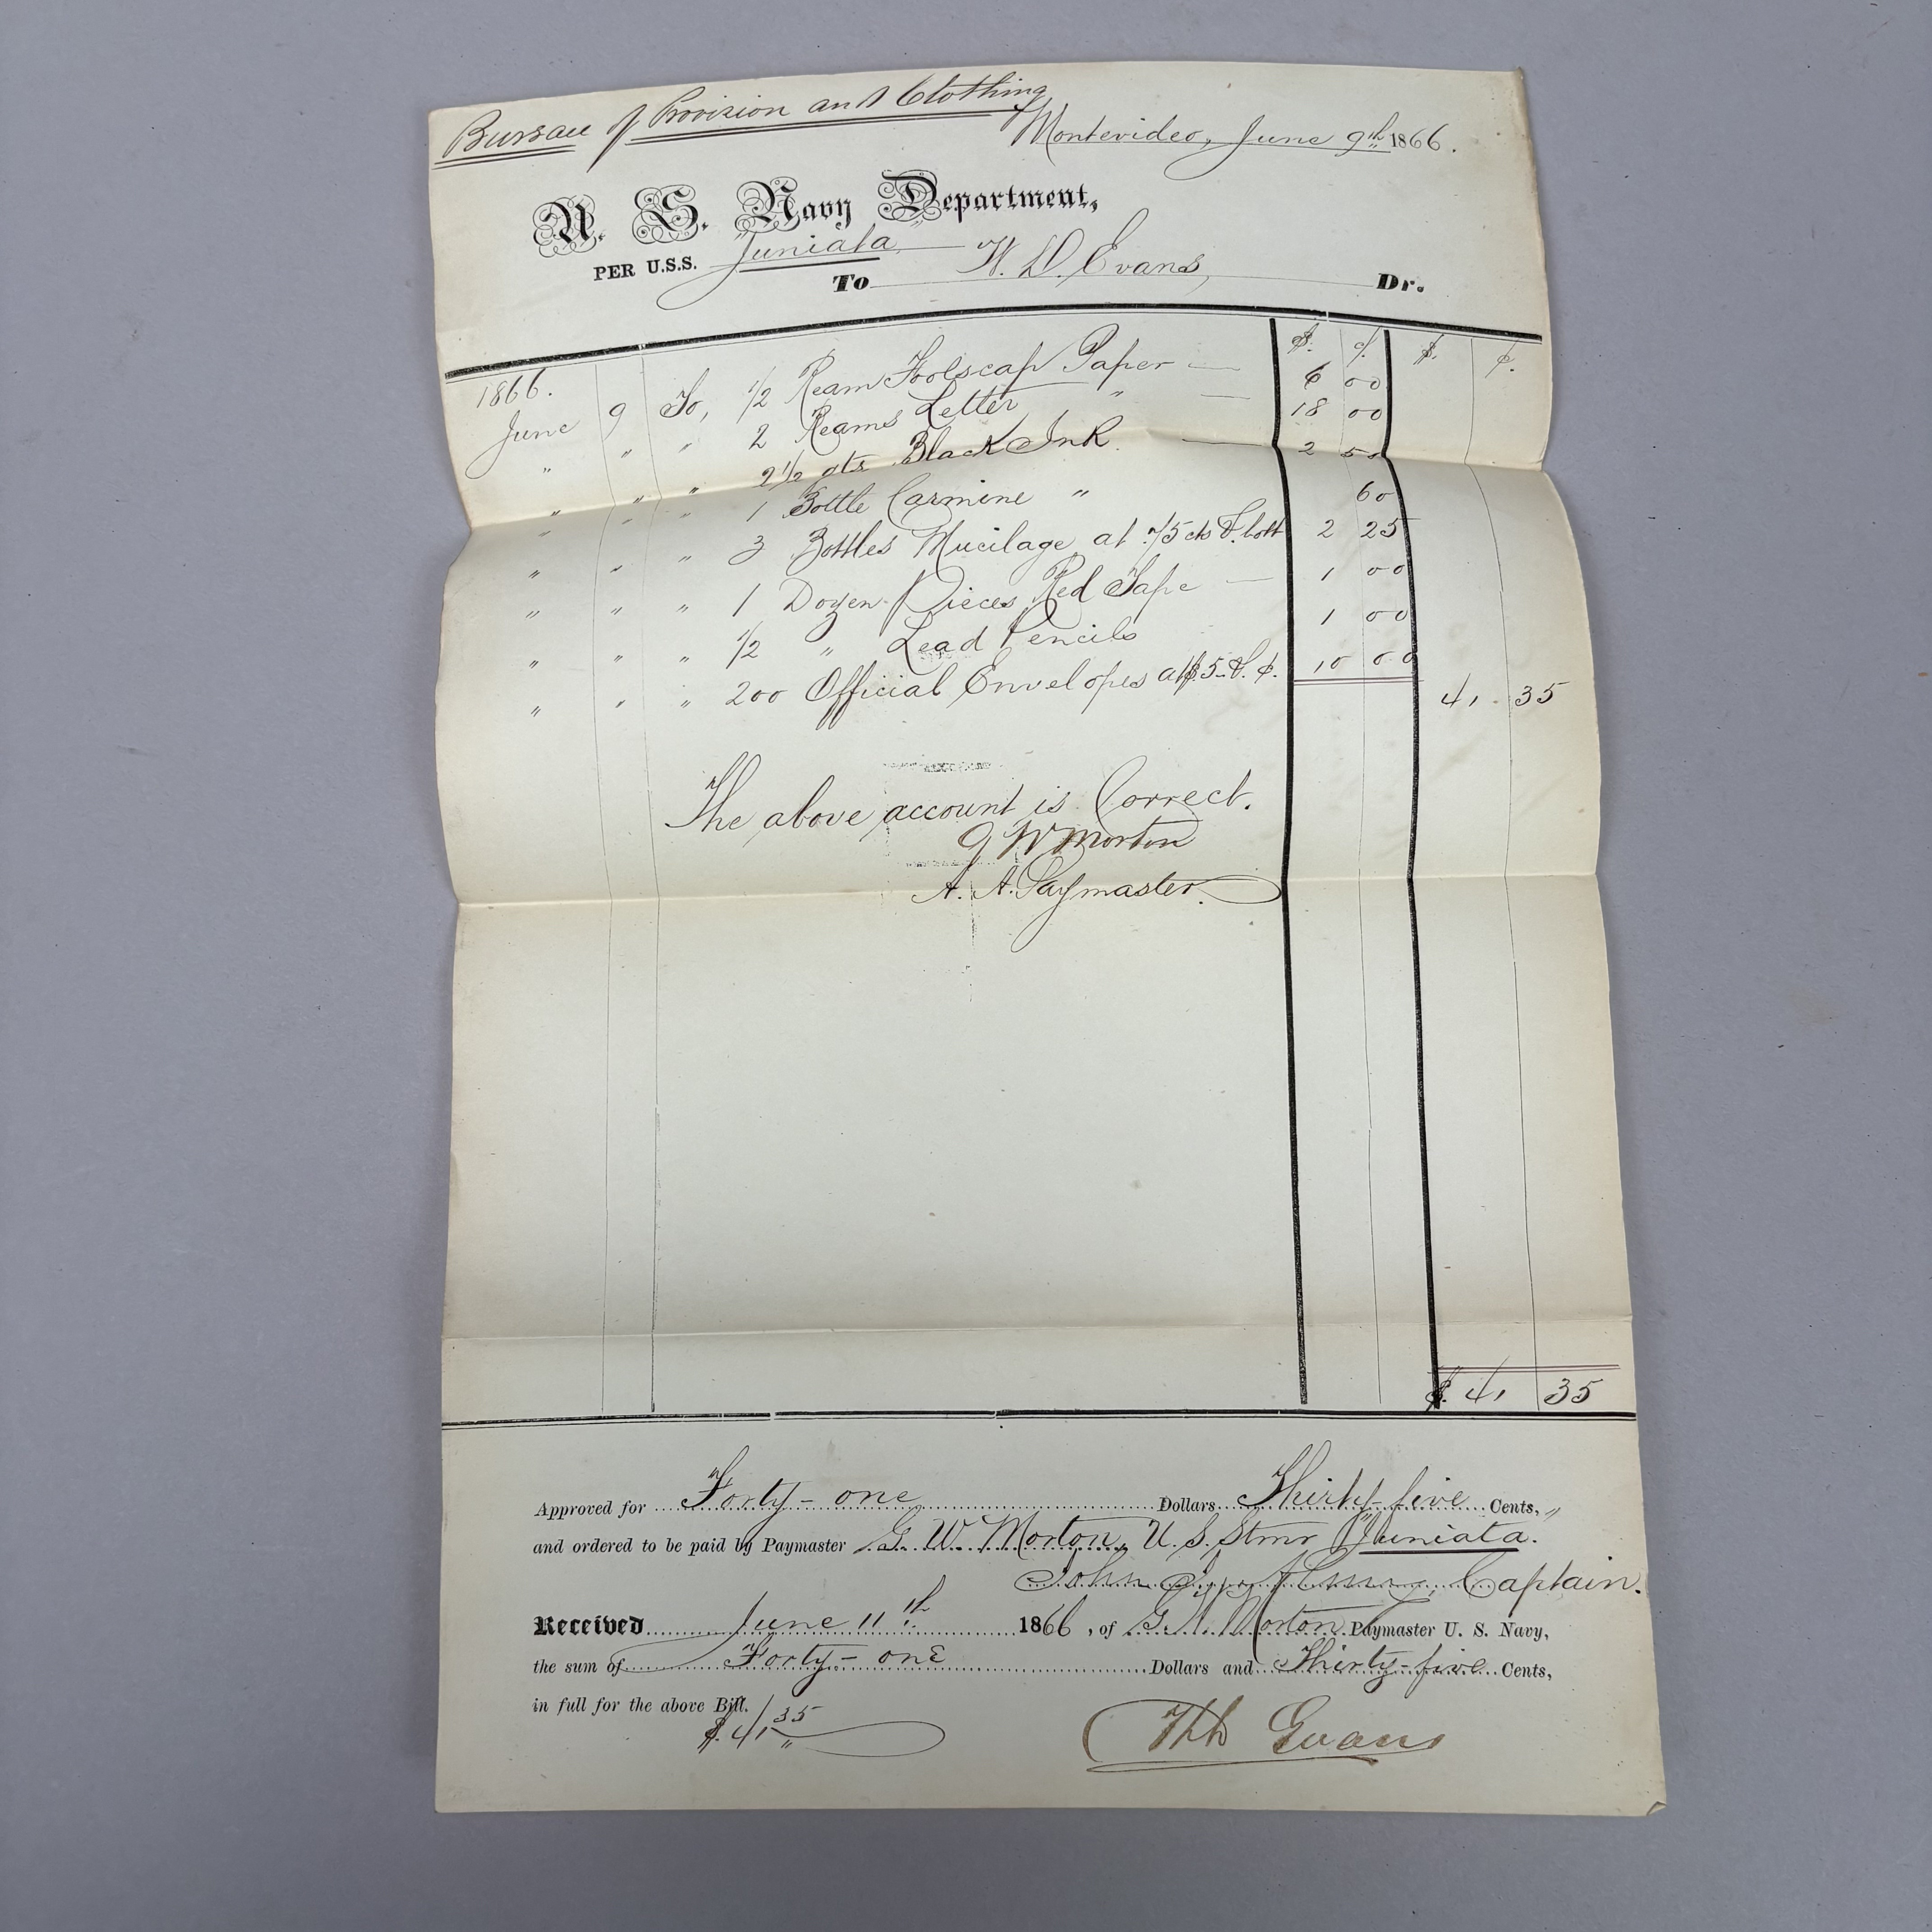 Bureau of Provision and Clothing
Montevideo, June 9th 1866.
U. S. Navy Department,
PER U.S.S. Juniata
To W. D. Evans, Dr.
$. c. $. c.
1866.
June 9 To, 1/2 Ream Foolscap Paper — 6 00
" " " 2 Reams Letter " — 18 00
" " " 2 1/2 qts Black Ink — 2 50
" " " 1 Bottle Carmine " 60
" " " 3 Bottles Mucilage at .75 cts P. bott 2 25
" " " 1 Dozen Pieces Red Tape — 1 00
" " " 1/2 " Lead Pencils 1 00
" " " 200 Official Envelopes at $5 P. c. 10 00
41 35
The above account is Correct.
G W Morton
A. A. Paymaster.
$. 41 35
Approved for Forty-one Dollars Thirty-five Cents,
and ordered to be paid by Paymaster G. W. Morton, U. S. Stmr "Juniata.
John Captain.
Received June 11th 1866, of G. W. Morton Paymaster U. S. Navy,
the sum of Forty-one Dollars and Thirty-five Cents,
in full for the above Bill.
$. 41 35
Evans